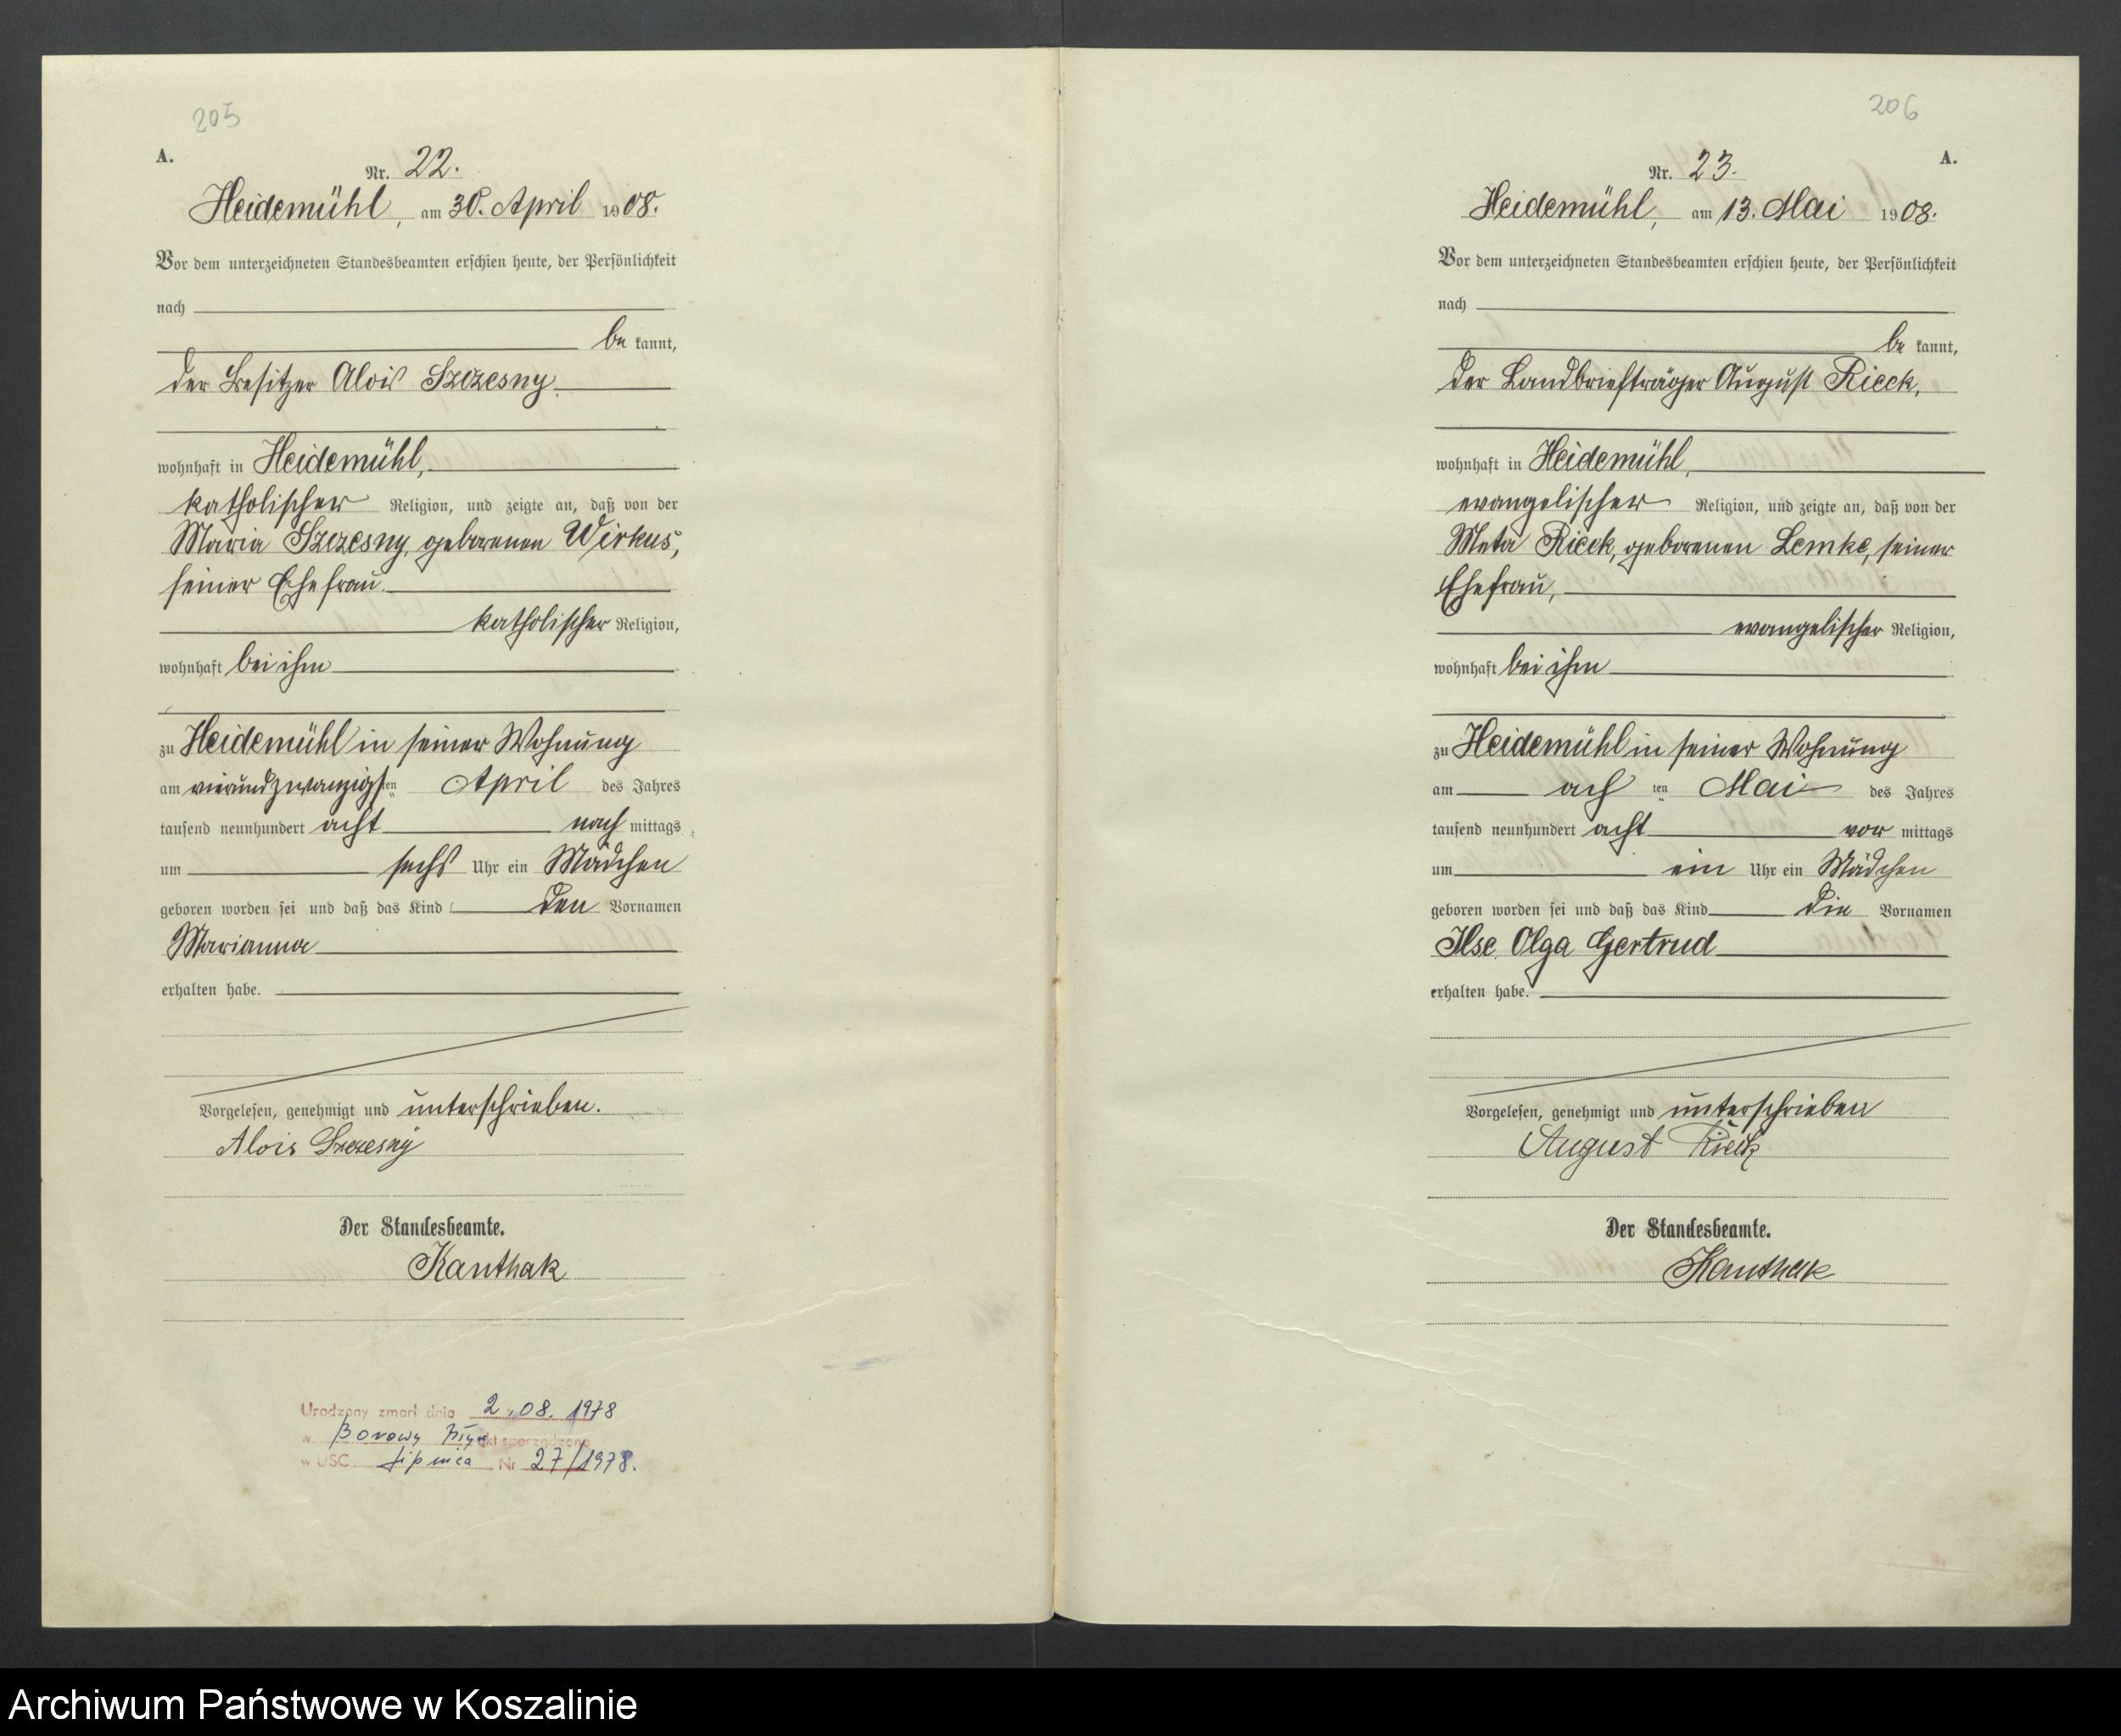 205
A.
Nr. 22.
Heidemühl, am 30. April 1908.
Vor dem unterzeichneten Standesbeamten erschien heute, der Persönlichkeit
nach
be kannt,
der Besitzer Alois Szczesny
wohnhaft in Heidemühl,
katholischer Religion, und zeigte an, daß von der
Maria Szczesny, geborenen Wirkus,
seiner Ehefrau.
katholischer Religion,
wohnhaft bei ihm
zu Heidemühl in seiner Wohnung
am vierundzwanzigsten April des Jahres
tausend neunhundert acht nach mittags
um sechs Uhr ein Mädchen
geboren worden sei und daß das Kind den Vornamen
Marianna
erhalten habe.
Vorgelesen, genehmigt und unterschrieben.
Alois Szczesny
Der Standesbeamte.
Kanthak
Urodzony zmarł dnia 2.08.1978
w Borowy Młyn akt sporządzono
w USC Lipnica Nr 27/1978.
206
A.
Nr. 23.
Heidemühl, am 13. Mai 1908.
Vor dem unterzeichneten Standesbeamten erschien heute, der Persönlichkeit
nach
be kannt,
der Landbriefträger August Rieck,
wohnhaft in Heidemühl,
evangelischer Religion, und zeigte an, daß von der
Meta Rieck, geborenen Lemke, seiner
Ehefrau,
evangelischer Religion,
wohnhaft bei ihm
zu Heidemühl in seiner Wohnung
am ach ten Mai des Jahres
tausend neunhundert acht vor mittags
um ein Uhr ein Mädchen
geboren worden sei und daß das Kind die Vornamen
Ilse Olga Gertrud
erhalten habe.
Vorgelesen, genehmigt und unterschrieben
August Rieck
Der Standesbeamte.
Kanthak
Archiwum Państwowe w Koszalinie